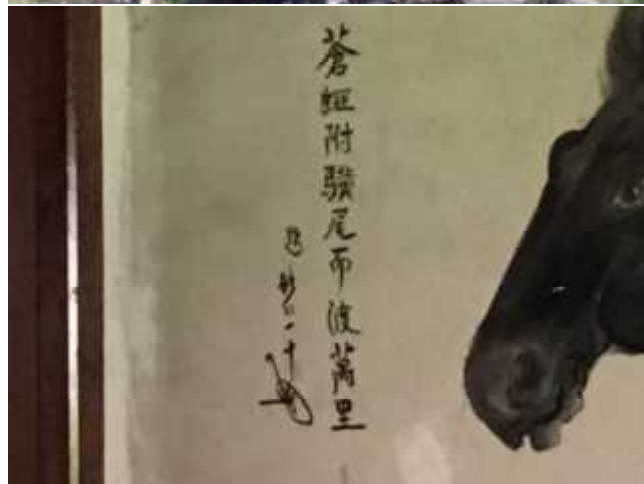 蒼蠅附驥尾而渡萬里